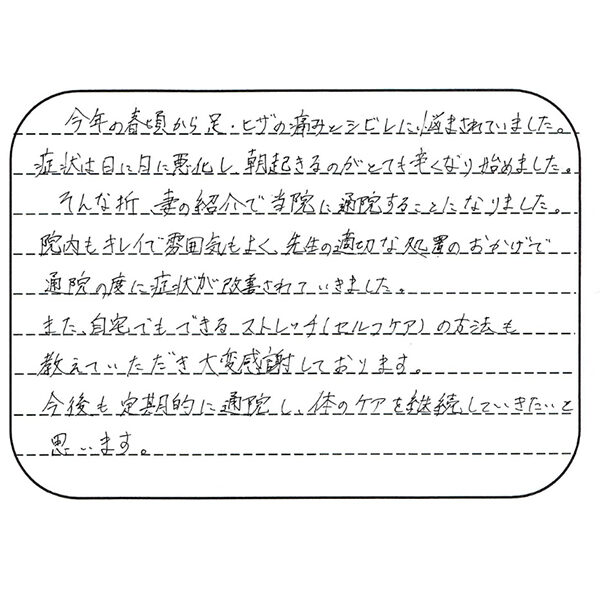 今年の春頃から足・ヒザの痛みとシビレに悩まされていました。
症状は日に日に悪化し、朝起きるのがとても辛くなり始めました。
そんな折、妻の紹介で当院に通院することになりました。
院内もキレイで雰囲気もよく、先生の適切な処置のおかげで
通院の度に症状が改善されていきました。
また、自宅でもできるストレッチ(セルフケア)の方法も
教えていただき大変感謝しております。
今後も定期的に通院し、体のケアを継続していきたいと
思います。